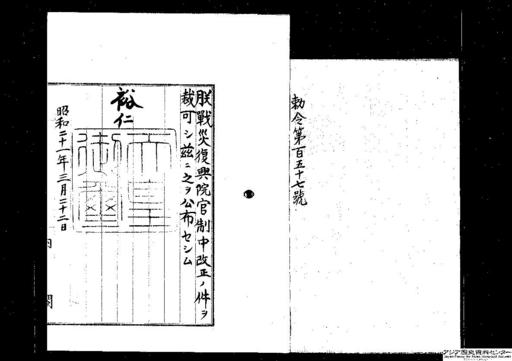 勅令第百五十七號
朕戰災復興院官制中改正ノ件ヲ
裁可シ茲ニ之ヲ公布セシム
裕仁
天皇御璽
昭和二十一年三月二十二日
内閣
アジア歴史資料センター